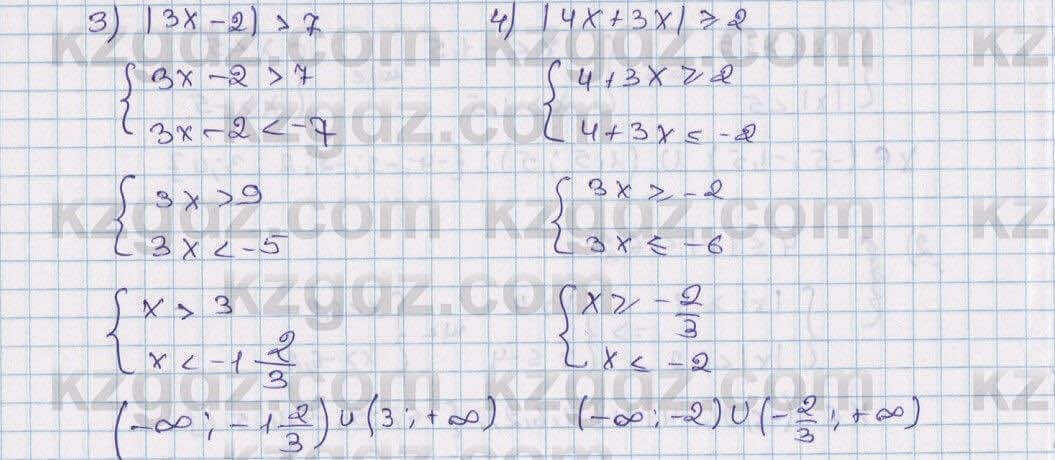 3) |3x-2| > 7
{ 3x-2 > 7
3x-2 < -7
{ 3x > 9
3x < -5
{ x > 3
x < -1 2/3
(-∞; -1 2/3) ∪ (3; +∞)
4) |4x+3x| ≥ 2
{ 4+3x ≥ 2
4+3x ≤ -2
{ 3x ≥ -2
3x ≤ -6
{ x ≥ -2/3
x ≤ -2
(-∞; -2) ∪ (-2/3; +∞)
kzgdz.com